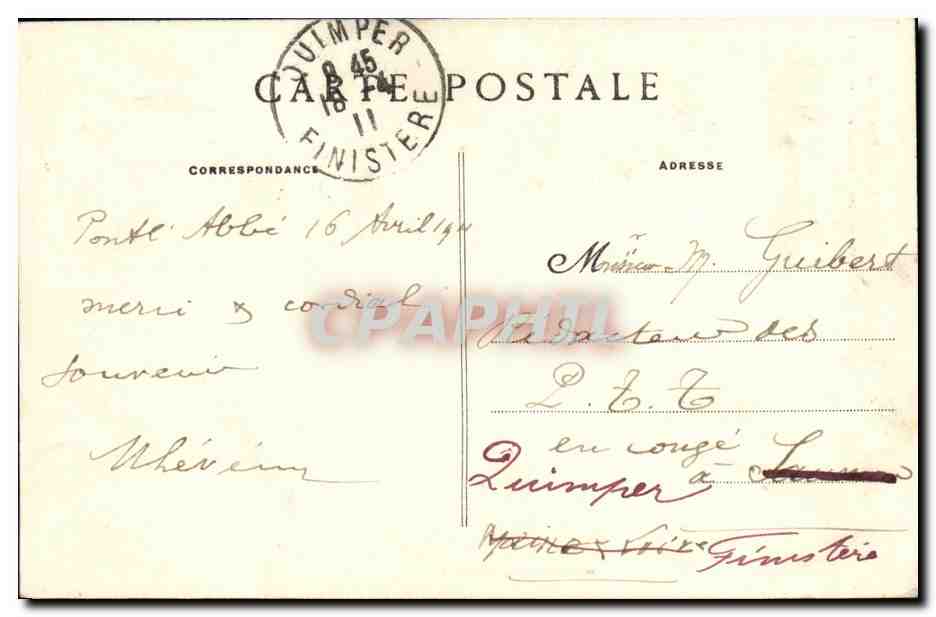 QUIMPER
8 45
16 -4
11
FINISTERE
CARTE POSTALE
CORRESPONDANCE
ADRESSE
Pont l'Abbé 16 Avril 1911
merci & cordial
souvenir
Monsieur M. Guibert
Rédacteur des
P.T.T
en congé
Quimper à
Finistère
CPAPHIL